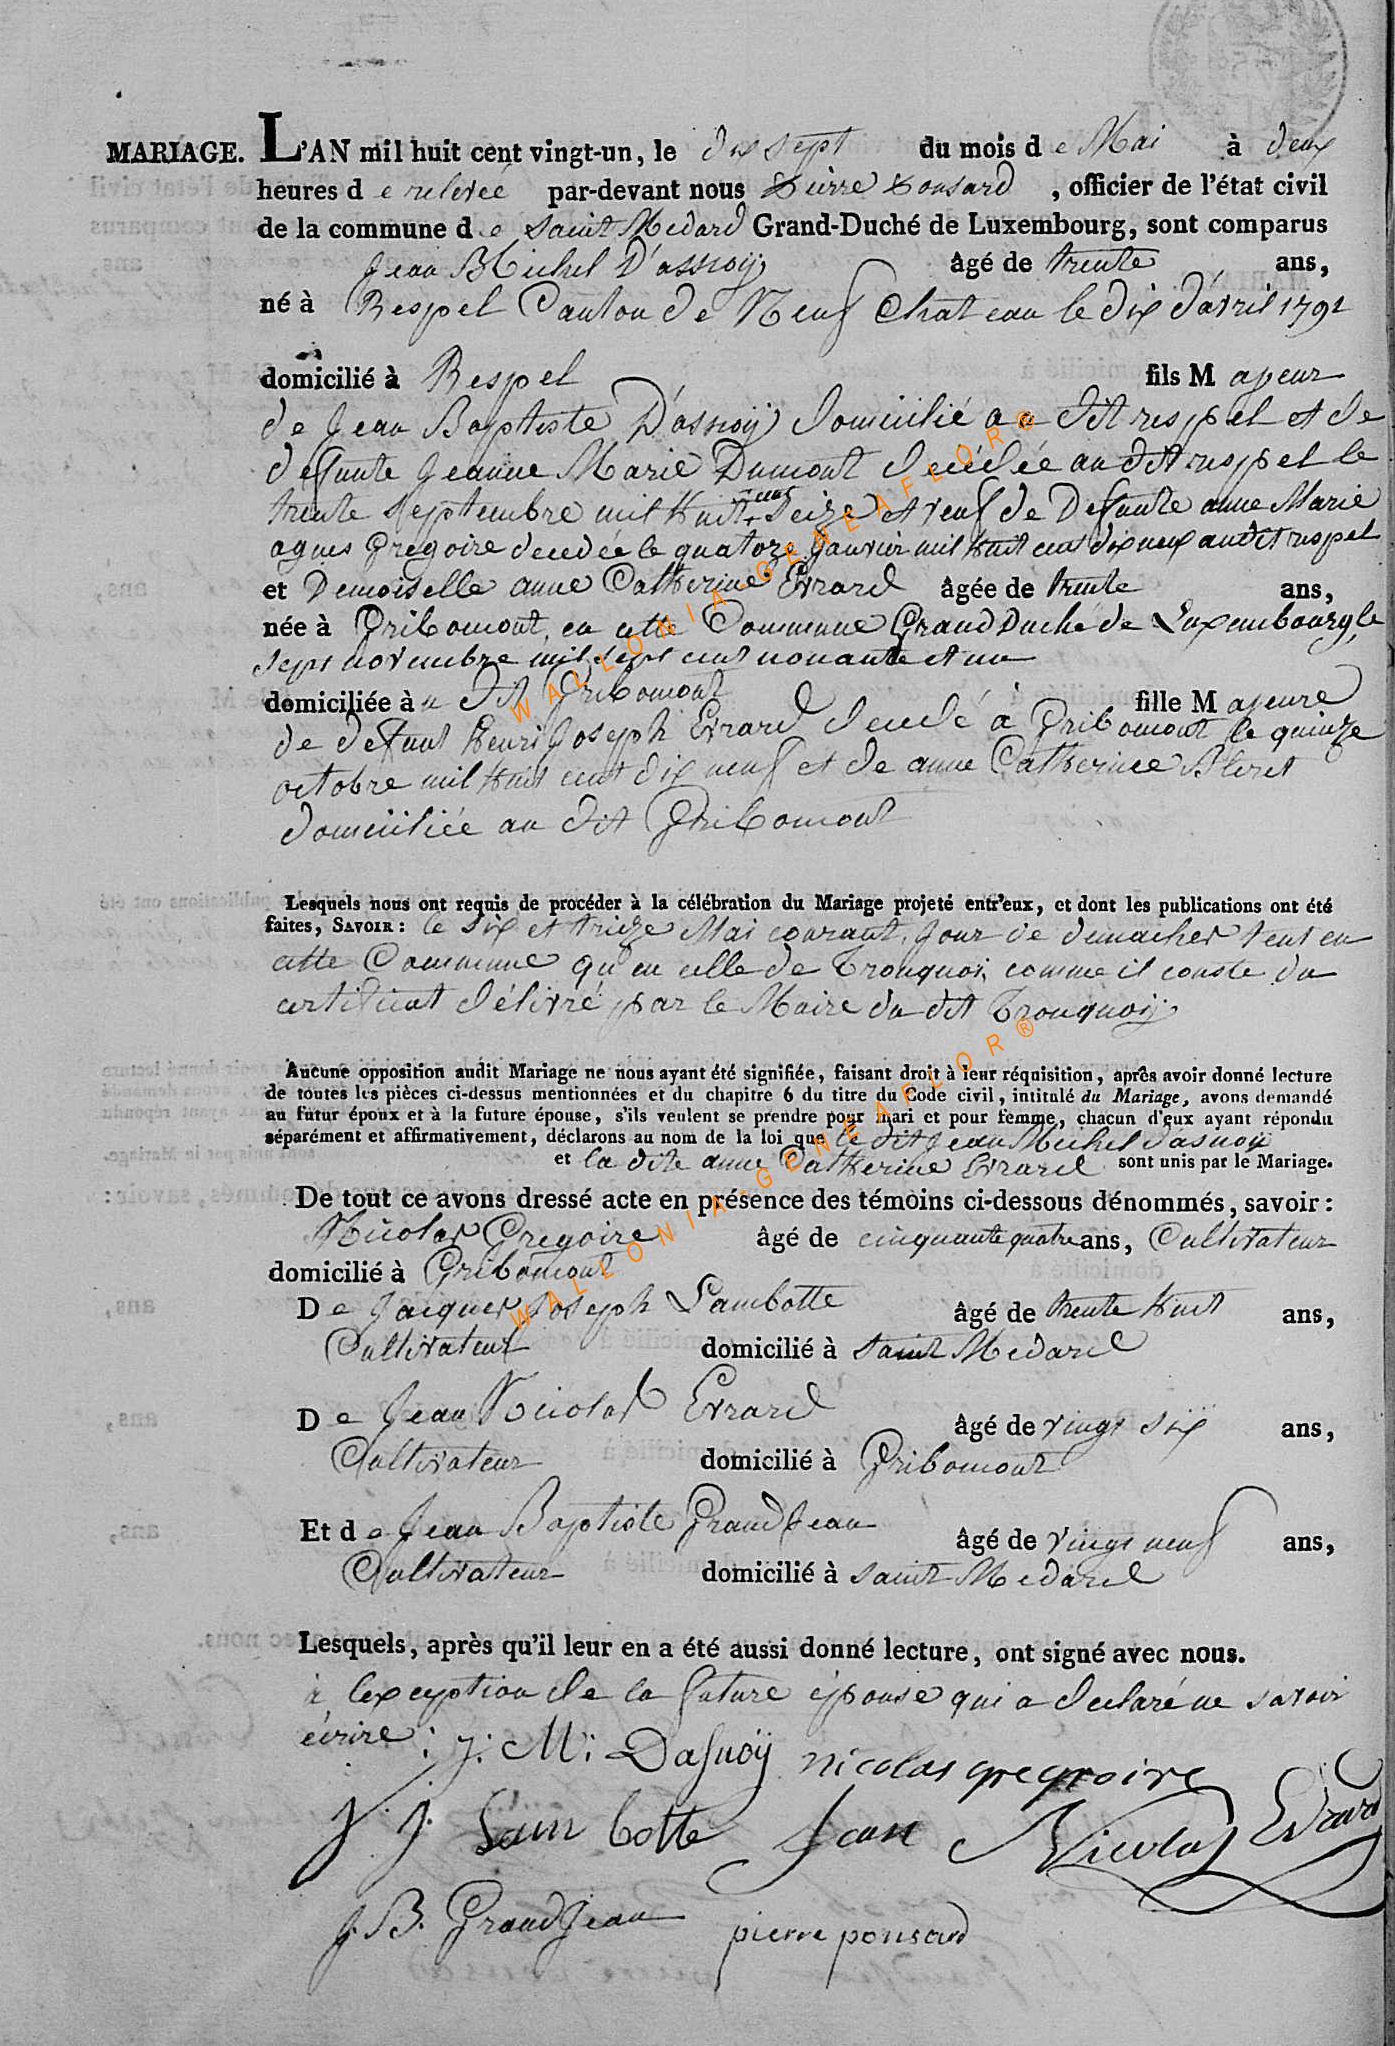 MARIAGE. L'AN mil huit cent vingt-un, le dix sept du mois de Mai à deux
heures de relevée par-devant nous Pierre Ponsard, officier de l'état civil
de la commune de Saint Medard Grand-Duché de Luxembourg, sont comparus
Jean Michel D'assnoÿ âgé de trente ans,
né à Respel Canton de Neuf Chateau le dix d'avril 1791
domicilié à Respel fils Majeur
de Jean Baptiste D'assnoÿ domicilié au dit respel et de
defunte Jeanne Marie Dumont decédée au dit respel le
trente Septembre mil huit cent Seize et veuf de Defunte anne Marie
agnes Gregoire decedée le quatorze Janvier mil huit cent dix neuf au dit respel
et Demoiselle anne Catherine Evrard âgée de trente ans,
née à Gribomont, en cette Commune Grand Duché de Luxembourg, le
sept novembre mil sept cent nonante et un
domiciliée au Dit Gribomont fille Majeure
de defunt Henri Joseph Evrard decedé à Gribomont le quinze
octobre mil huit cent dix neuf et de anne Catherine Pleret
domiciliée au dit Gribomont
Lesquels nous ont requis de procéder à la célébration du Mariage projeté entr'eux, et dont les publications ont été
faites, SAVOIR : le six et treize Mai courant, Jour de dimanches tant en
cette Commune qu'en celle de Tronquoi, comme il conste du
certificat délivré par le Maire du dit Tronquoÿ
Aucune opposition audit Mariage ne nous ayant été signifiée, faisant droit à leur réquisition, après avoir donné lecture
de toutes les pièces ci-dessus mentionnées et du chapitre 6 du titre du Code civil, intitulé du Mariage, avons demandé
au futur époux et à la future épouse, s'ils veulent se prendre pour mari et pour femme, chacun d'eux ayant répondu
séparément et affirmativement, déclarons au nom de la loi que le dit Jean Michel dasnoÿ
et la dite anne Catherine Evrard sont unis par le Mariage.
De tout ce avons dressé acte en présence des témoins ci-dessous dénommés, savoir :
Nicolas Gregoire âgé de cinquante quatre ans, Cultivateur
domicilié à Gribomont
De Jacques Joseph Lambotte âgé de trente huit ans,
Cultivateur domicilié à Saint Medard
De Jean Nicolas Evrard âgé de vingt six ans,
Cultivateur domicilié à Gribomont
Et de Jean Baptiste GrandJean âgé de vingt neuf ans,
Cultivateur domicilié à Saint Medard
Lesquels, après qu'il leur en a été aussi donné lecture, ont signé avec nous.
à l'exception de la future épouse qui a declaré ne savoir
écrire : J: M: Dasnoÿ nicolas gregroire
J J. Lam botte Jean Nicolas Evrard
J. B. GrandJean pierre ponsard
WALLONIA-GENEAFLOR®
WALLONIA-GENEAFLOR®